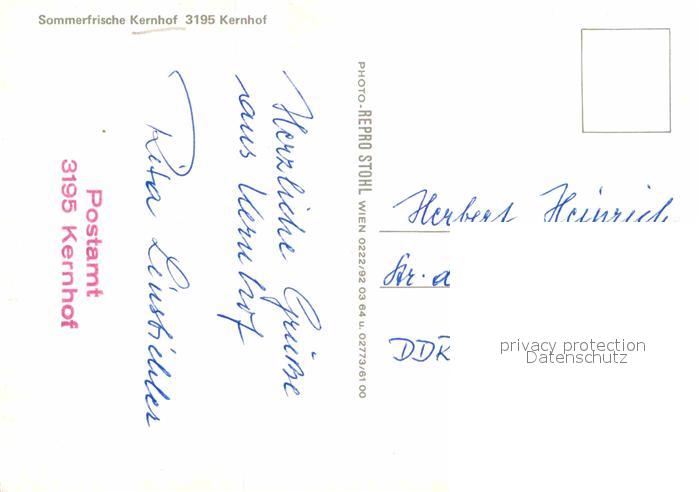 Sommerfrische Kernhof 3195 Kernhof
Herzliche Grüße
aus Kernhof
Rita
Postamt
3195 Kernhof
PHOTO-REPRO STOHL WIEN 0222/92 03 64 u. 02773/61 00
Herbert Heinrich
Str. a
DDR
privacy protection
Datenschutz